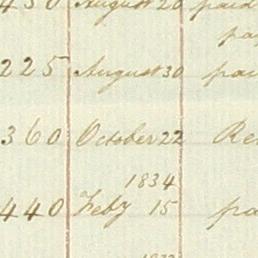 430 August 20 paid
pa
225 August 30 pai
360 October 22 Re
1834
440 Feby 15 pa